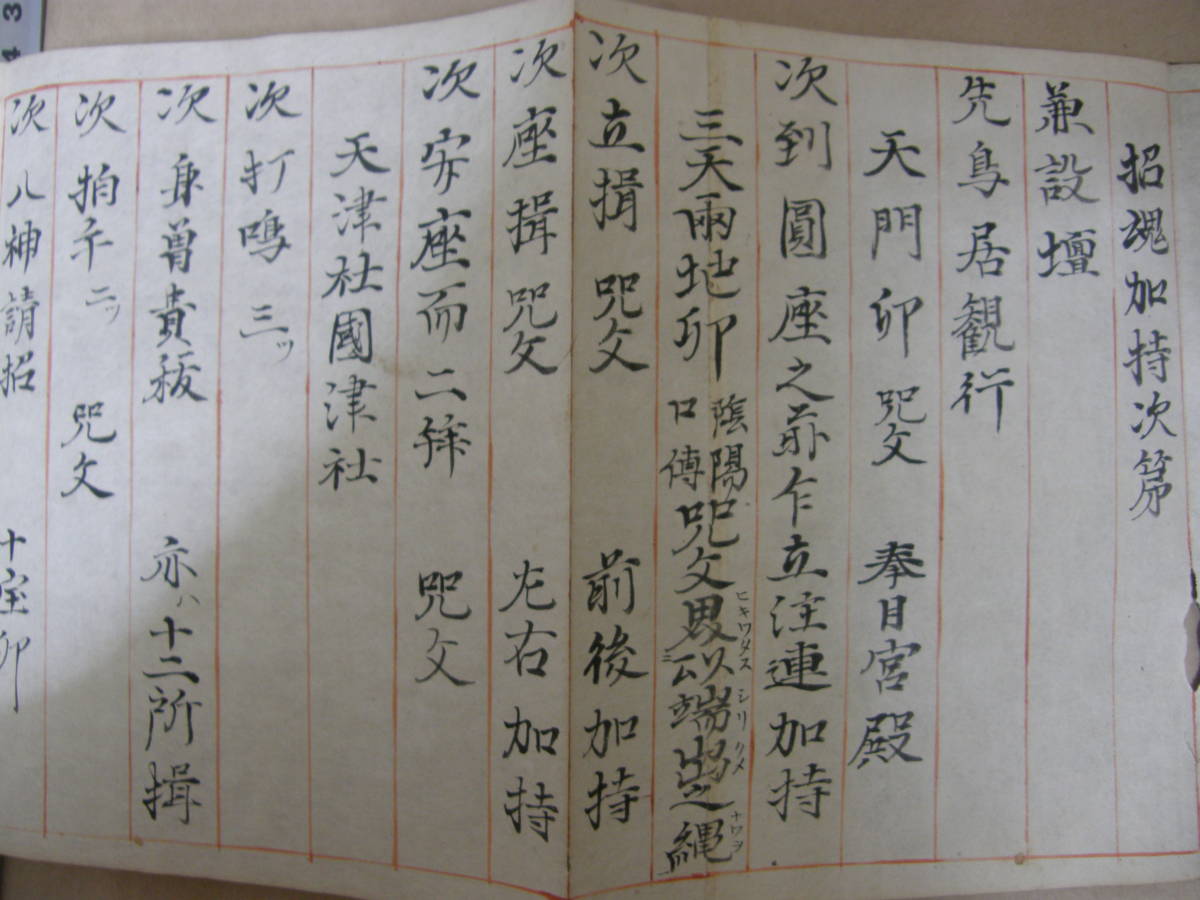 招魂加持次第
兼設壇
先鳥居観行
天門印 咒文 奉日宮殿
次到圓座之前乍立注連加持
三天兩地印 陰陽口傳 咒文 以端出之縄
次立揖 咒文 前後加持
次座揖 咒文 左右加持
次安座而二拜 咒文
天津社國津社
次打鳴三ッ
次身曽貴秡 亦ハ十二所揖
次拍手二ッ 咒文
次八神請招 十宝印
3